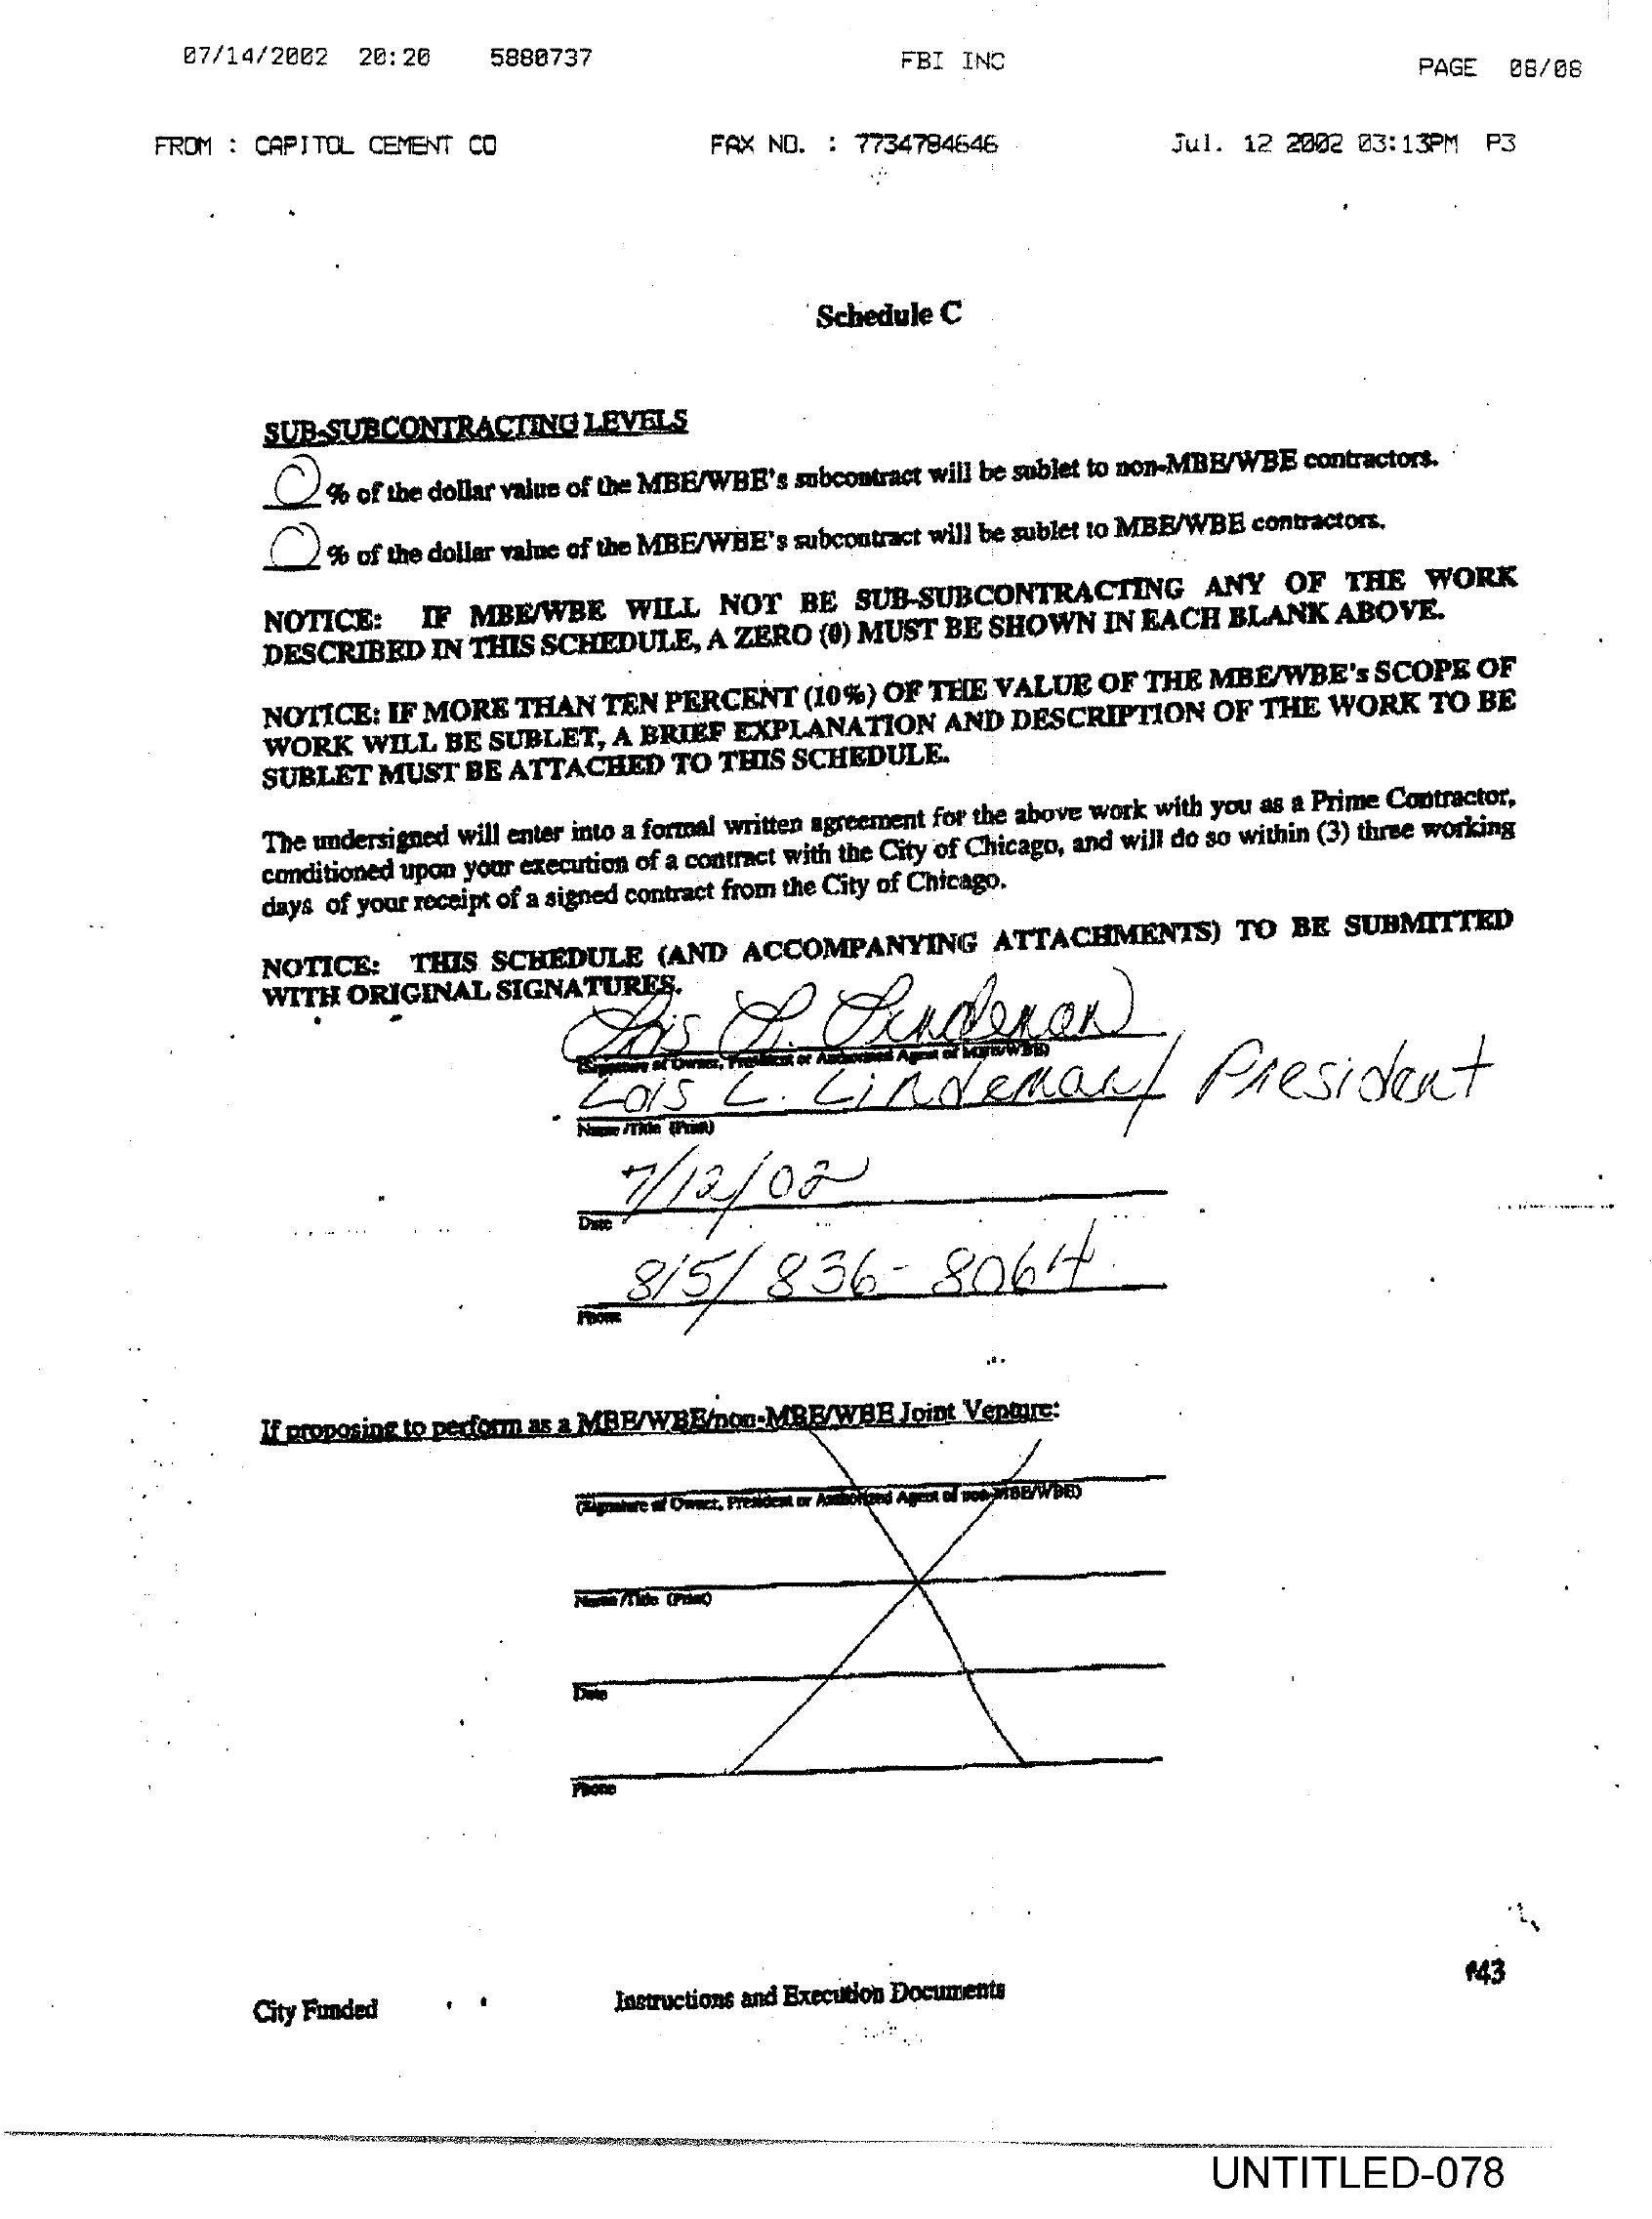 07/14/2002 20:20 5880737 FBI INC PAGE 08/08
FROM : CAPITOL CEMENT CO FAX NO. : 7734784646 Jul. 12 2002 03:13PM P3
Schedule C
SUB-SUBCONTRACTING LEVELS
0 % of the dollar value of the MBE/WBE's subcontract will be sublet to non-MBE/WBE contractors.
0 % of the dollar value of the MBE/WBE's subcontract will be sublet to MBE/WBE contractors.
NOTICE: IF MBE/WBE WILL NOT BE SUB-SUBCONTRACTING ANY OF THE WORK
DESCRIBED IN THIS SCHEDULE, A ZERO (0) MUST BE SHOWN IN EACH BLANK ABOVE.
NOTICE: IF MORE THAN TEN PERCENT (10%) OF THE VALUE OF THE MBE/WBE's SCOPE OF
WORK WILL BE SUBLET, A BRIEF EXPLANATION AND DESCRIPTION OF THE WORK TO BE
SUBLET MUST BE ATTACHED TO THIS SCHEDULE.
The undersigned will enter into a formal written agreement for the above work with you as a Prime Contractor,
conditioned upon your execution of a contract with the City of Chicago, and will do so within (3) three working
days of your receipt of a signed contract from the City of Chicago.
NOTICE: THIS SCHEDULE (AND ACCOMPANYING ATTACHMENTS) TO BE SUBMITTED
WITH ORIGINAL SIGNATURES.
Lois L. Lindeman
(Signature of Owner, President or Authorized Agent of MBE/WBE)
Lois L. Lindeman/ President
Name /Title (Print)
7/12/02
Date
815/836-8064
Phone
If proposing to perform as a MBE/WBE/non-MBE/WBE Joint Venture:
(Signature of Owner, President or Authorized Agent of non-MBE/WBE)
Name /Title (Print)
Date
Phone
43
City Funded Instructions and Execution Documents
UNTITLED-078